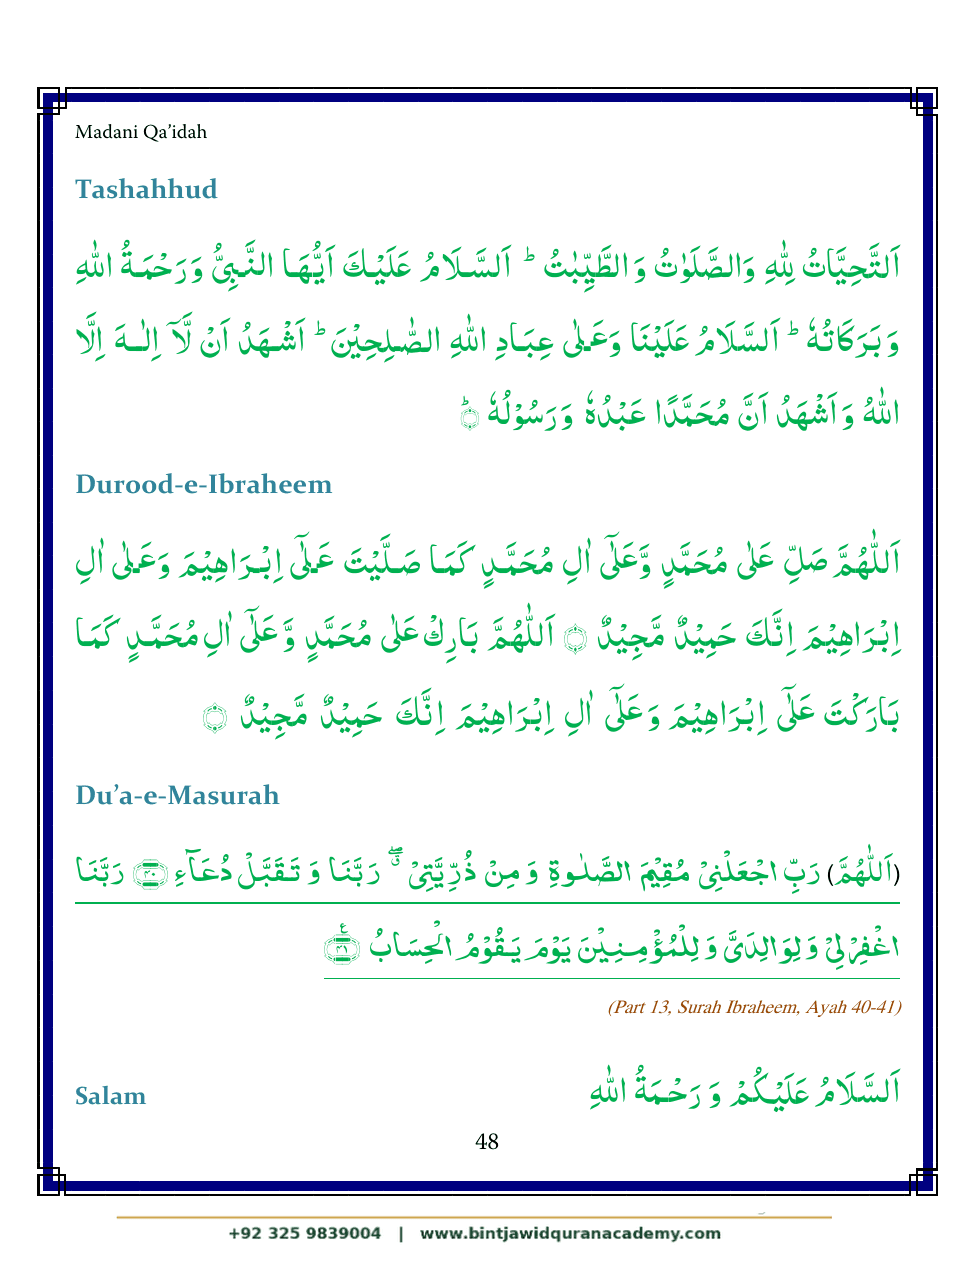 Madani Qa’idah
Tashahhud
اَلتَّحِيَّاتُ لِلّٰهِ وَالصَّلَوٰتُ وَالطَّيِّبٰتُ ؕ اَلسَّلَامُ عَلَيْكَ اَيُّهَا النَّبِيُّ وَرَحْمَةُ اللّٰهِ
وَبَرَكَاتُهٗ ؕ اَلسَّلَامُ عَلَيْنَا وَعَلٰى عِبَادِ اللّٰهِ الصّٰلِحِيْنَ ؕ اَشْهَدُ اَنْ لَّاۤ اِلٰهَ اِلَّا
اللّٰهُ وَاَشْهَدُ اَنَّ مُحَمَّدًا عَبْدُهٗ وَرَسُوْلُهٗ ؕ۝
Durood-e-Ibraheem
اَللّٰهُمَّ صَلِّ عَلٰى مُحَمَّدٍ وَّعَلٰۤى اٰلِ مُحَمَّدٍ كَمَا صَلَّيْتَ عَلٰۤى اِبْرَاهِيْمَ وَعَلٰى اٰلِ
اِبْرَاهِيْمَ اِنَّكَ حَمِيْدٌ مَّجِيْدٌ ۝ اَللّٰهُمَّ بَارِكْ عَلٰى مُحَمَّدٍ وَّعَلٰۤى اٰلِ مُحَمَّدٍ كَمَا
بَارَكْتَ عَلٰۤى اِبْرَاهِيْمَ وَعَلٰۤى اٰلِ اِبْرَاهِيْمَ اِنَّكَ حَمِيْدٌ مَّجِيْدٌ ۝
Du’a-e-Masurah
(اَللّٰهُمَّ) رَبِّ اجْعَلْنِیْ مُقِیْمَ الصَّلٰوةِ وَ مِنْ ذُرِّیَّتِیْ ۖۗ رَبَّنَا وَ تَقَبَّلْ دُعَآءِ ﴿۴۰﴾ رَبَّنَا
اغْفِرْ لِیْ وَ لِوَالِدَیَّ وَ لِلْمُؤْمِنِیْنَ یَوْمَ یَقُوْمُ الْحِسَابُ ﴿۴۱﴾ ع
(Part 13, Surah Ibraheem, Ayah 40-41)
Salam اَلسَّلَامُ عَلَيْكُمْ وَ رَحْمَةُ اللّٰهِ
48
+92 325 9839004 | www.bintjawidquranacademy.com